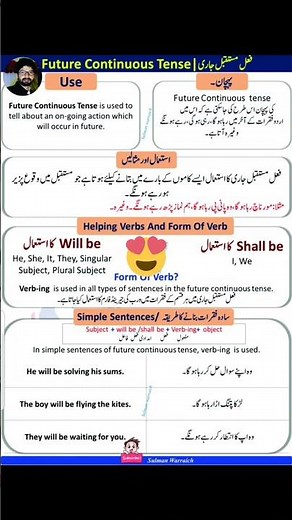 Future Continuous Tense|فعل مستقبل جاری
Use
پہچان۔
Future Continuous Tense is used to
tell about an on-going action which
will occur in future.
Future Continuous tense
کی پہچان اس طرح کی جاسکتی ہے کہ اس میں
اردو فقرات کے آخر میں رہا ہوگا، رہی ہوگی، رہے ہونگے
وغیرہ آتا ہے۔
استعمال اور مثالیں
فعل مستقبل جاری کا استعمال ایسے کاموں کے بارے میں بتانے کیلئے ہوتا ہے جو مستقبل میں وقوع پزیر
ہو رہے ہونگے۔
مثلاً: مور ناچ رہا ہوگا، وہ پانی پی رہا ہوگا، ہم نماز پڑھ رہے ہونگے۔ وغیرہ۔
Helping Verbs And Form Of Verb
Will be کا استعمال
He, She, It, They, Singular
Subject, Plural Subject
Shall be کا استعمال
I, We
Form of Verb?
Verb-ing is used in all types of sentences in the future continuous tense.
Simple Sentences/ سادہ فقرات بنانے کا طریقہ
Subject + will be /shall be + Verb-ing+ object
مفعول فعل امدادی فعل فاعل
In simple sentences of future continuous tense, verb-ing is used.
He will be solving his sums.
وہ اپنے سوال حل کر رہا ہوگا۔
The boy will be flying the kites.
لڑکا پتنگ اڑا رہا ہوگا۔
They will be waiting for you.
وہ آپ کا انتظار کر رہے ہونگے۔
Subscribe
Salman Warraich